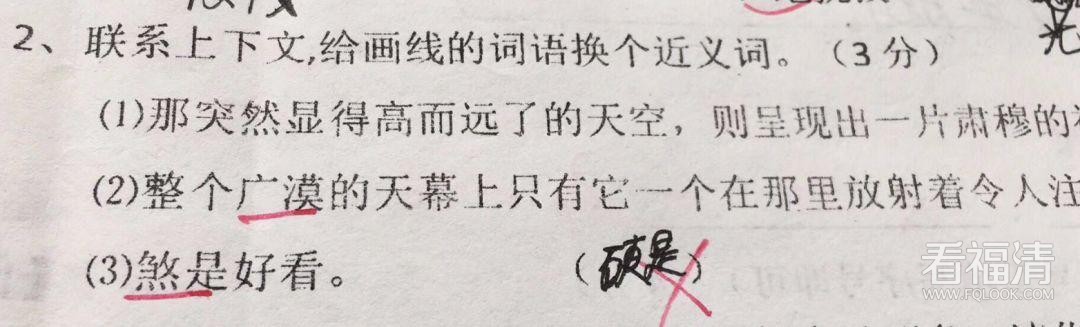 2、联系上下文,给画线的词语换个近义词。（3分）
(1)那突然显得高而远了的天空，则呈现出一片肃穆的
(2)整个广漠的天幕上只有它一个在那里放射着令人注
(3)煞是好看。（硕是）
看福清
WWW.FQLOOK.COM